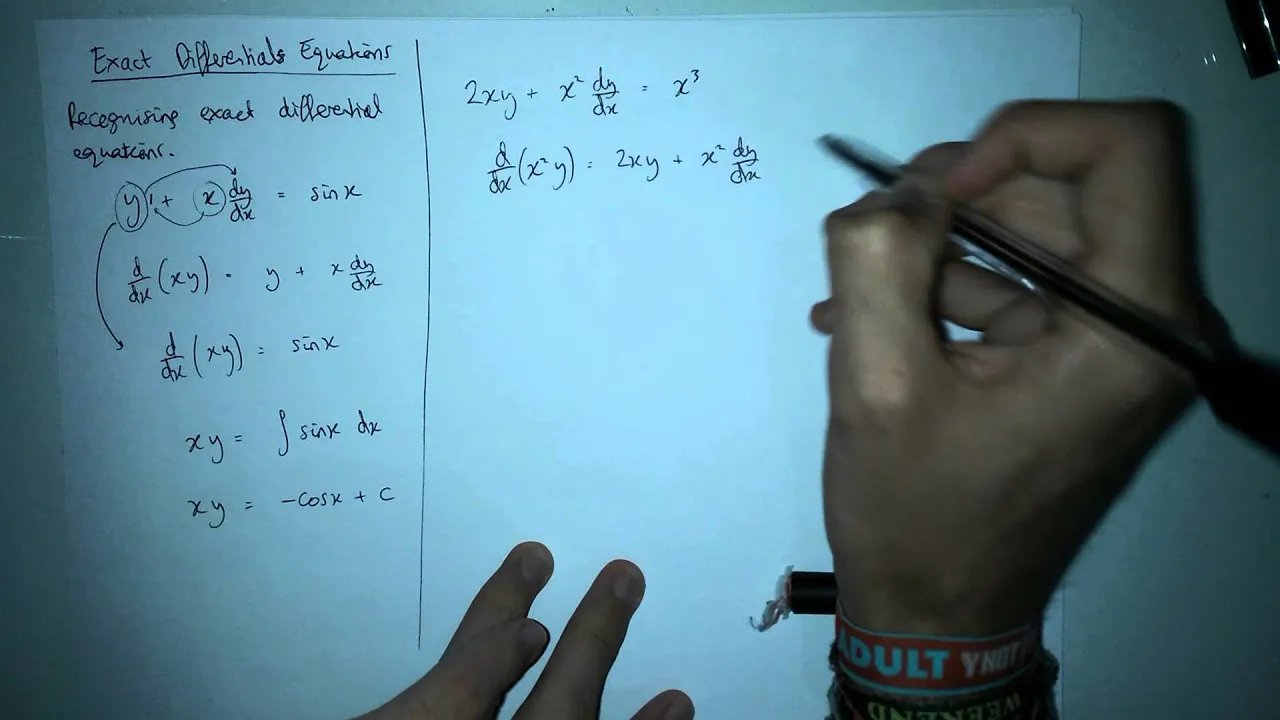 Exact Differentials Equations
Recognising exact differential
equations.
y1 + x dy/dx = sinx
d/dx (xy) = y + x dy/dx
d/dx (xy) = sinx
xy = ∫ sinx dx
xy = -cosx + c
2xy + x² dy/dx = x³
d/dx (x²y) = 2xy + x² dy/dx
ADULT YNOT
WEEKEND